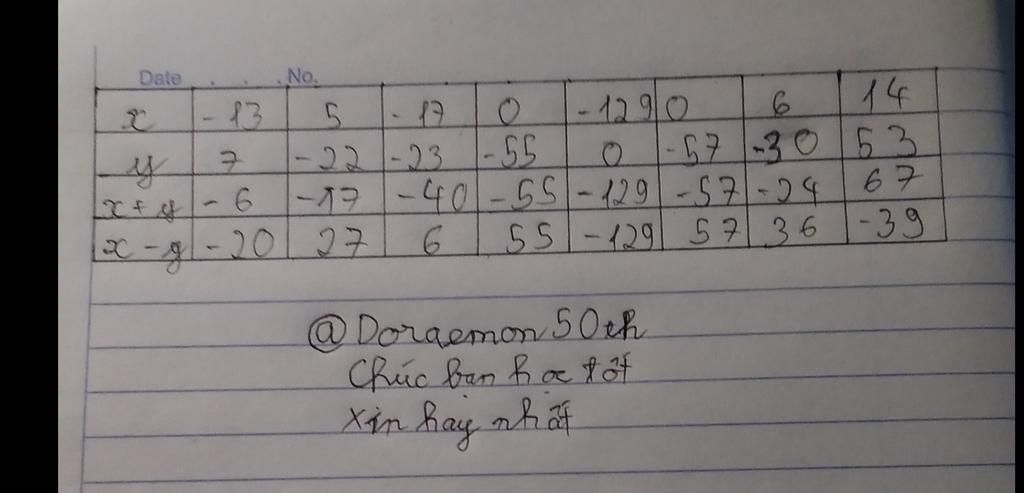 Date . . . . No.
x -13 5 -17 0 -129 0 6 14
y 7 -22 -23 -55 0 -57 -30 53
x+y -6 -17 -40 -55 -129 -57 -24 67
x-y -20 27 6 55 -129 57 36 -39
@Doraemon50th
Chúc bạn học tốt
Xin hay nhất